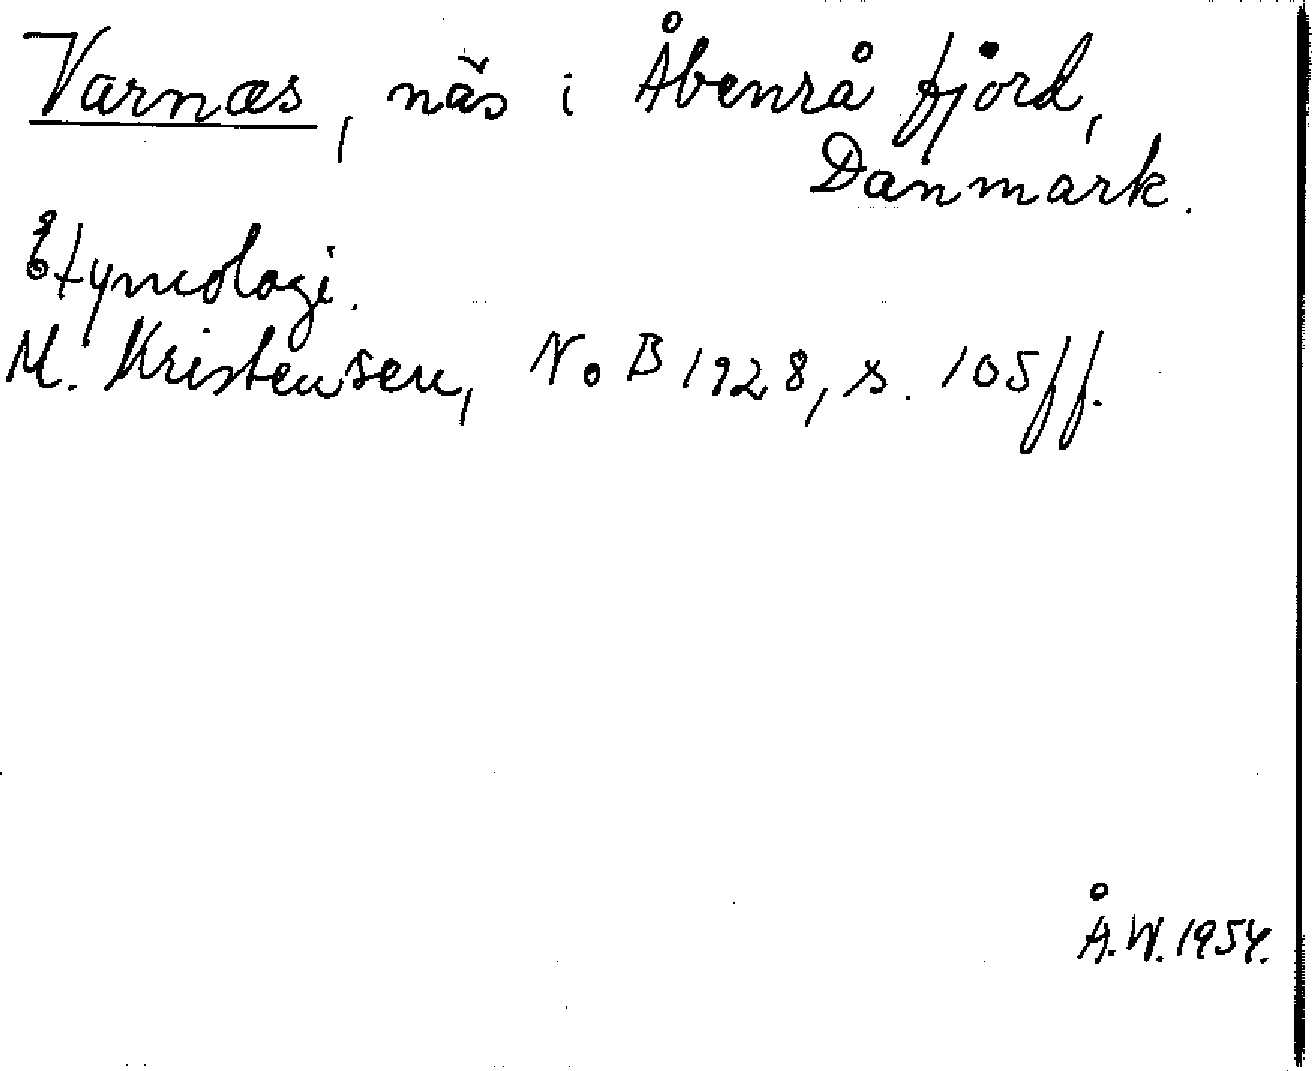 Varnæs, näs i Åbenrå fjord,
Danmark.
Etymologi.
M. Kristensen, NoB 1928, s. 105 ff.
Å.W. 1954.